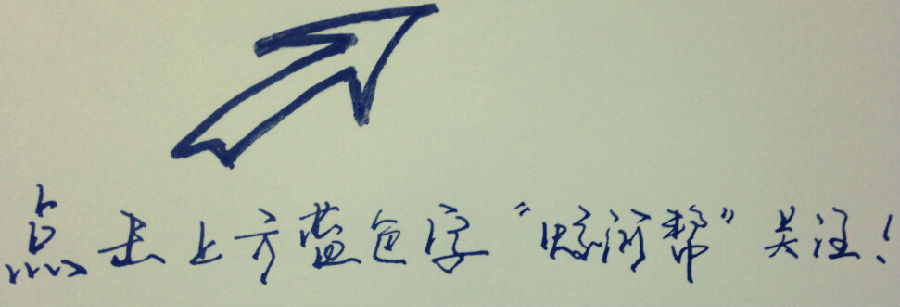 点击上方蓝色字“ 帮”关注！